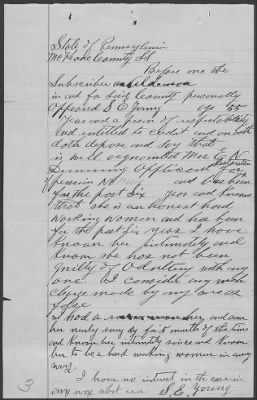 State of Pennsylvania
McKean County SS
Before me the
Subscriber an alderman
in and for said County personally
Appeared S E Young age 55
a person of respectability
and entitled to credit and on oath
doth depose and say that
is well acquainted Mrs E N
Applicant for
pension No and has been
for the past six years and knows
that she is an honest hard
Working Women and has been
for the past six years I have
known her intimately and
know she has not been
Guilty of with any
one. I consider any such
charge made by any one as
false
I had a and saw
her nearly every day for months of the time
and known her intimately since and known
her to be a hard working women in every
way.
I have no interest in the case in
any way what ever S. E. Young
3